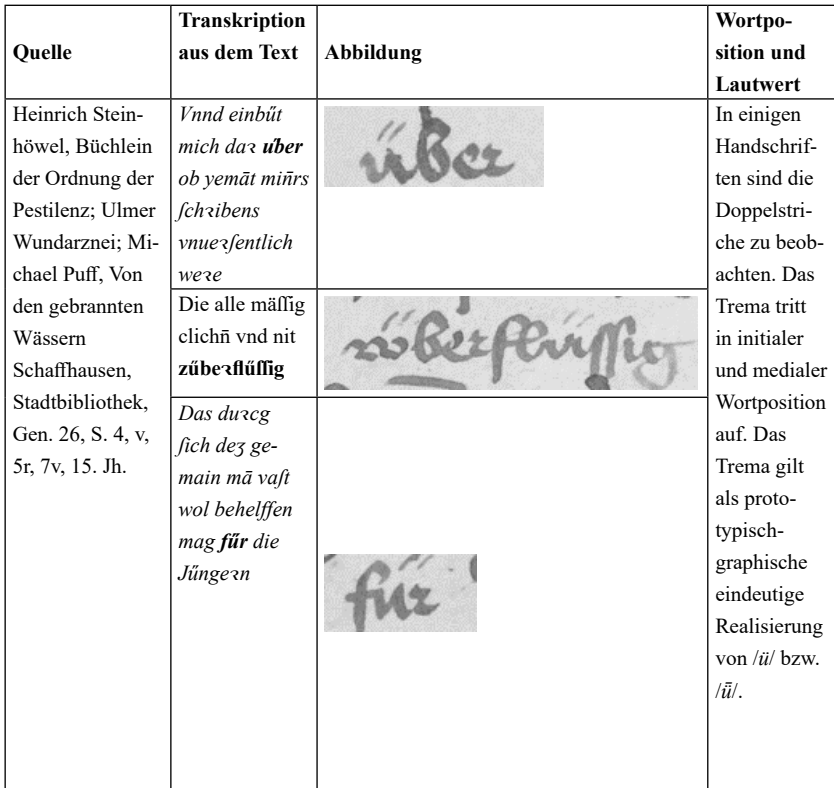 Quelle
Transkription
aus dem Text
Abbildung
Wortpo-
sition und
Lautwert
Heinrich Stein-
höwel, Büchlein
der Ordnung der
Pestilenz; Ulmer
Wundarznei; Mi-
chael Puff, Von
den gebrannten
Wässern
Schaffhausen,
Stadtbibliothek,
Gen. 26, S. 4, v,
5r, 7v, 15. Jh.
Vnnd einbűt
mich daꝛ űber
ob yemāt min̄rs
ſchꝛibens
vnueꝛſentlich
weꝛe
über
In einigen
Handschrif-
ten sind die
Doppelstri-
che zu beob-
achten. Das
Trema tritt
in initialer
und medialer
Wortposition
auf. Das
Trema gilt
als proto-
typisch-
graphische
eindeutige
Realisierung
von /ü/ bzw.
/ǖ/.
Die alle mäſſig
clichn̄ vnd nit
zűbeꝛflűſſig
Das duꝛcg
ſich deʒ ge-
main mā vaſt
wol behelffen
mag fűr die
Jűngeꝛn
für